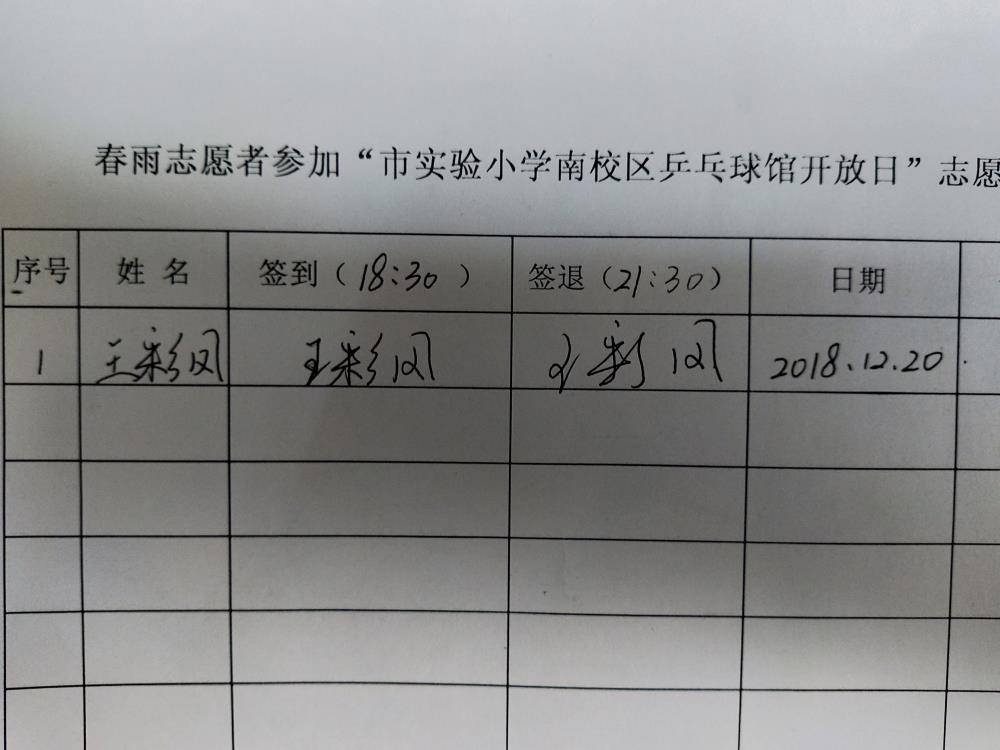 春雨志愿者参加“市实验小学南校区乒乓球馆开放日”志愿
序号 姓名 签到（18:30） 签退（21:30） 日期
1 王彩凤 王彩凤 王彩凤 2018.12.20.